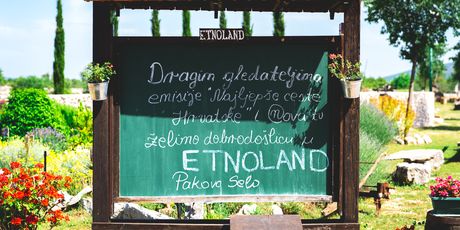 ETNOLAND
Dragim gledateljima
emisije Najljepše ceste
Hrvatske i @Nova tv
želimo dobrodošlicu u
ETNOLAND
Pakovo Selo